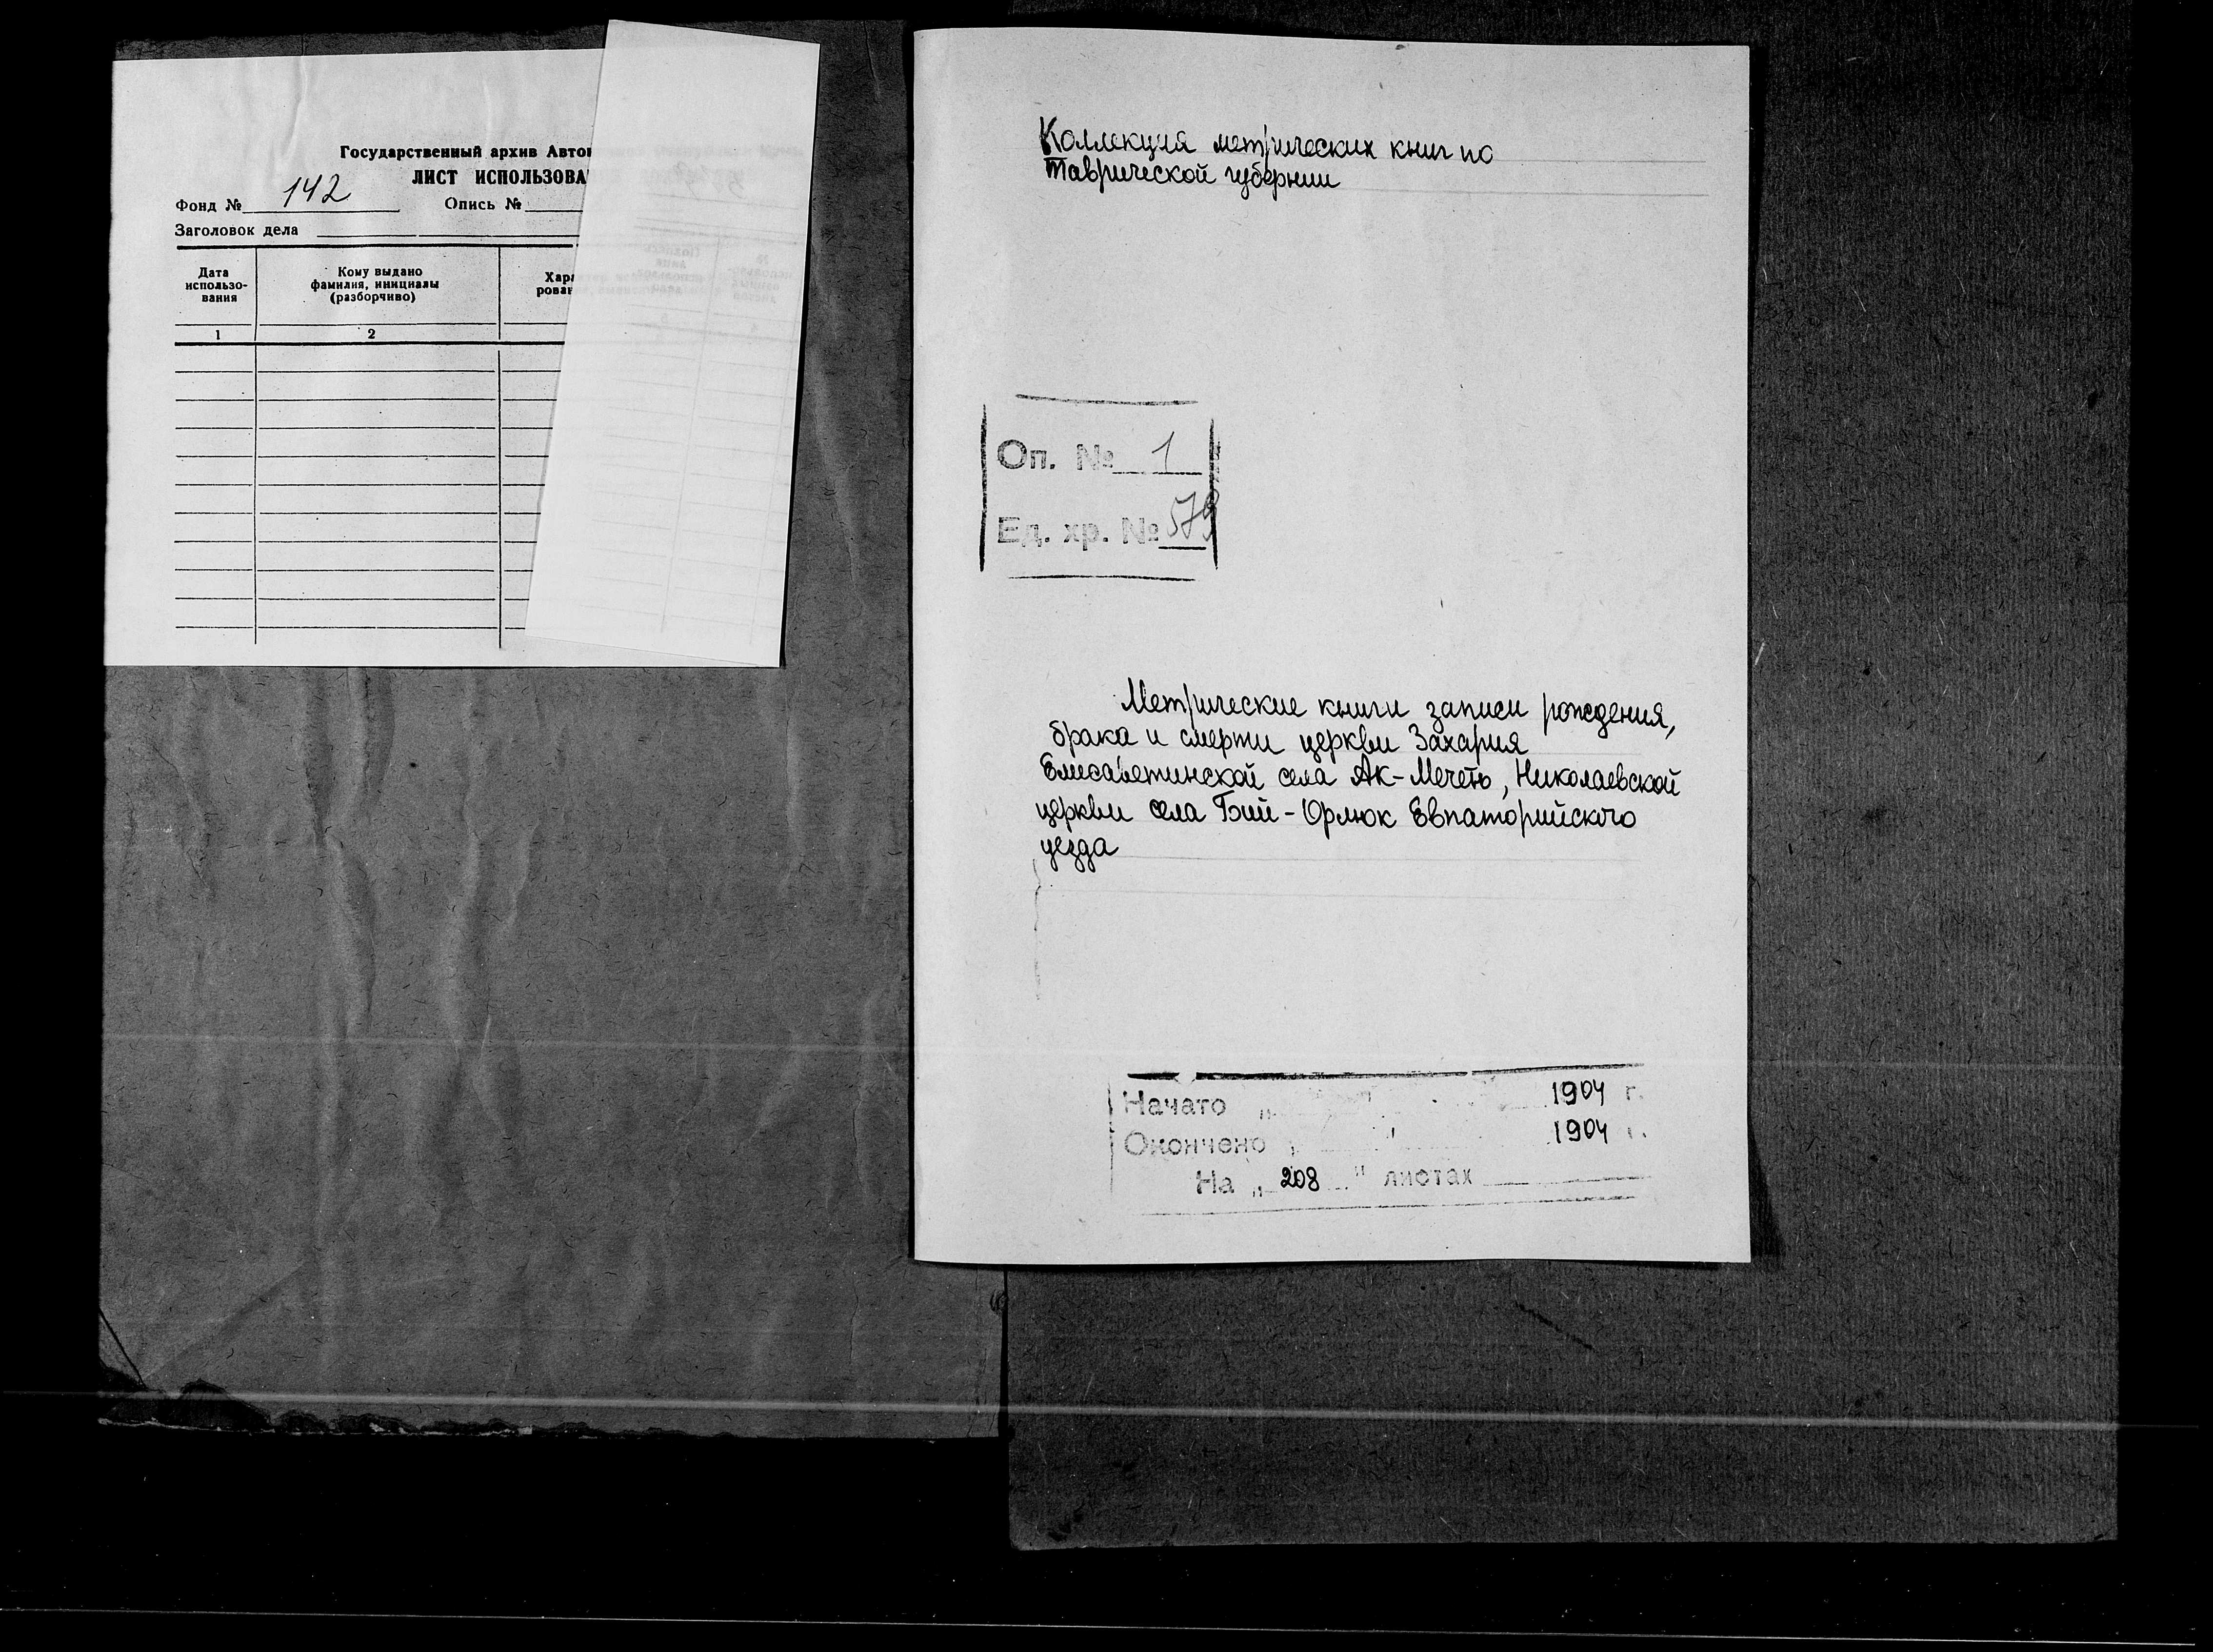 Государственный архив Авто
ЛИСТ ИСПОЛЬЗОВА
Фонд № 142 Опись №
Заголовок дела
Дата использо-вания
Кому выдано
фамилия, инициалы
(разборчиво)
Хара
рован
1 2
Коллекция метрических книг по
Таврической губернии
Оп. № 1
Ед. хр. № 579
Метрические книги записи рождения,
брака и смерти церкви Захария
Елисаветинской села Ак-Мечеть, Николаевской
церкви села Бий-Орлюк Евпаторийского
уезда
Начато „ " 1904 г.
Окончено „ " 1904 г.
На „ 208 " листах